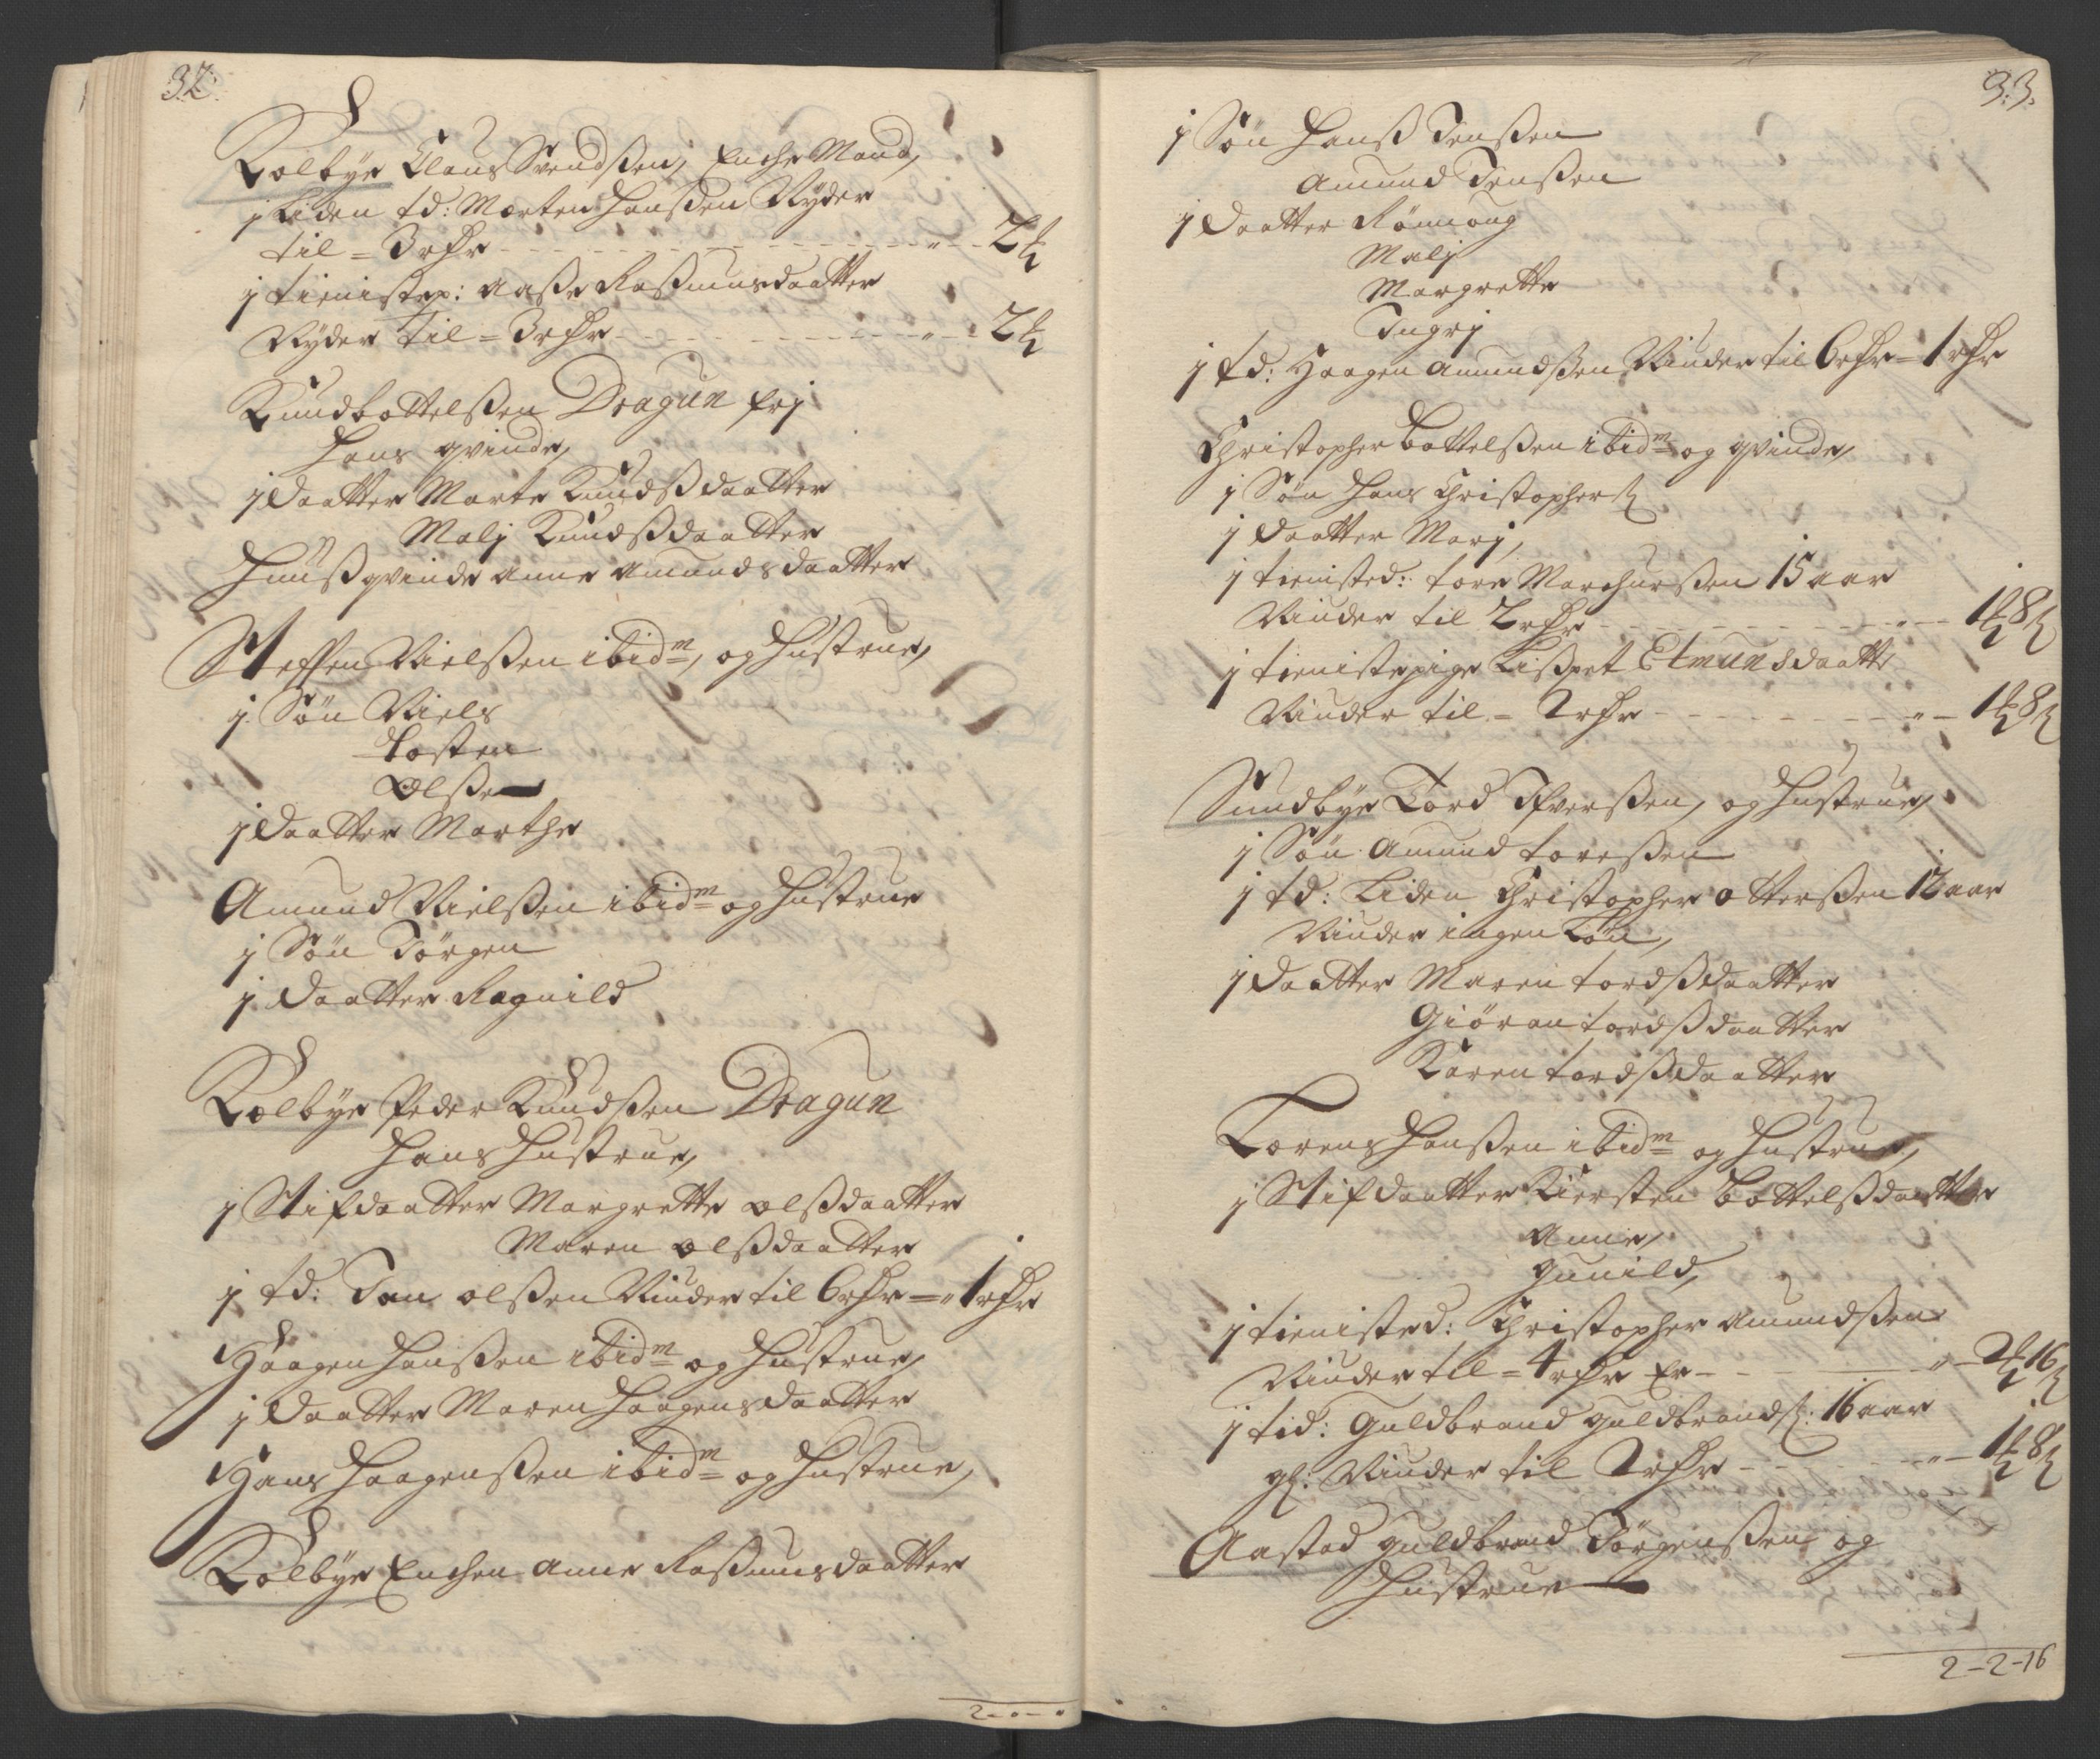 32.
Kolbye Claus Svendsen, Enche Mand,
j Liden td: Morten Hansen Nyder
til = 3 rdr - - - " - 2 ℔
j tienistep: Aase Rasmusdaatter
Nyder til = 3 rdr - - - " - 2 ℔
Knud bottelsen Dragun frj
Hans qvinde,
j Daatter Marte Knudsdaatter
Malj Knudsdaatter
Huusqvinde Anne Amundsdaatter
Steffen Nielsen ibidm, og Hustrue,
j Søn Niels
Tosten
Olse
j Daatter Marthe
Amund Nielsen ibidm og Hustrue
j Søn Jørgen
j Daatter Ragnild
Kolbye Peder Knudsen Dragun
Hans Hustrue,
j Stifdaatter Margrette olsdaatter
Maren olsdaatter
j td: Jan olsen Niuder til 6 rdr = " 1 rdr
Haagen Hansen ibidm og Hustrue,
j Daatter Maren Haagensdaatter
Hans Haagensen ibidm og Hustrue,
Kolbye Enchen Anne Rasmusdaatter
2 - " - "
33.
j Søn Hans Jensen
Amund Jensen
j Daatter Rønnoug
Malj
Margrette
Ingrj
j td: Haagen Amundsen Niuder til 6 rdr = 1 rdr
Christopher bottelsen ibidm og qvinde,
j Søn Hans Christophers
j Daatter Marj,
j tienisted: tore Marchursen 15 aar
Niuder til 2 rdr - - - " - 1 ℔ 8 s
j tienistepige Lisbet Etmunsdaatt
Niuder til = 2 rdr - - - " - 1 ℔ 8 s
Sundbye Tord Ifversen, og Hustrue,
j Søn Amund toresen
j td: Liden Christopher ottersen 12 aar
Niuder ingen Løn,
j Daatter Maren tordsdaatter
Giøran tordsdaatter
Karen tordsdaatter
Lorens Hansen ibidm og Hustrue,
j Stifdaatter Kiersten bottelsdaatter
Anne,
gunild,
j tienisted: Christopher Amundsen
Niuder til = 4 rdr Er - - " - 2 ℔ 16 s
j tid: Guldbrand guldbrands: 16 aar
gl: Niuder til 2 rdr - - " - 1 ℔ 8 s
Aastad guldbrand Jørgensen og
Hustrue
2 - 2 - 16